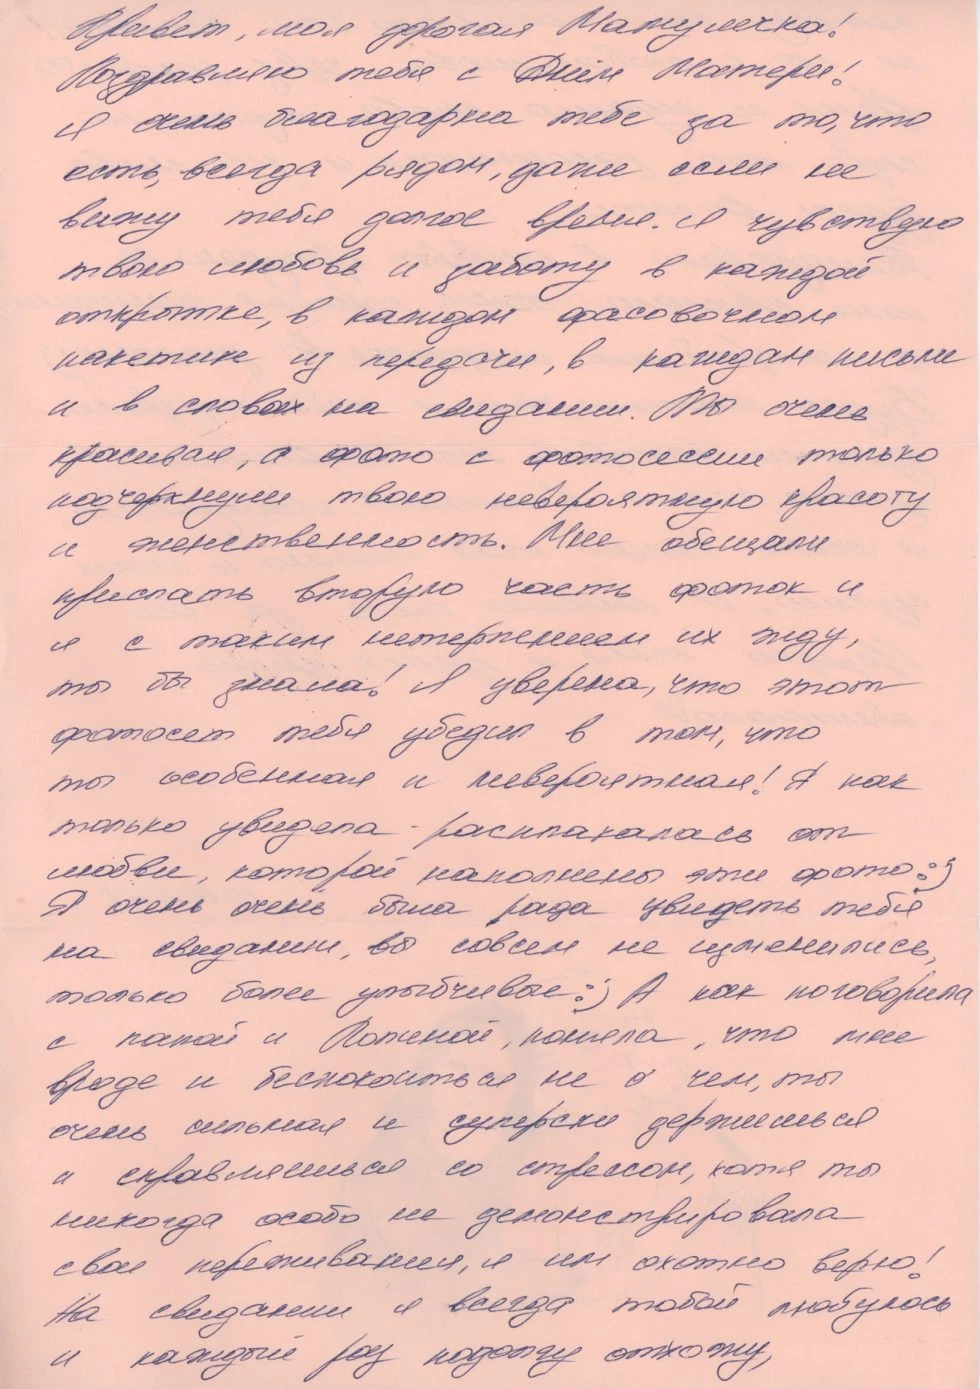 Привет, моя дорогая Мамулечка!
Поздравляю тебя с Днём Матери!
Я очень благодарна тебе за то, что
есть, всегда рядом, даже если не
вижу тебя долгое время. Я чувствую
твою любовь и заботу в каждой
открытке, в каждом фасовочном
пакетике из передачи, в каждом письме
и в словах на свидании. Ты очень
красивая, а фото с фотосессии только
подчеркнули твою невероятную красоту
и женственность. Мне обещали
прислать вторую часть фоток и
я с таким нетерпением их жду,
ты бы знала! Я уверена, что этот
фотосет тебя убедил в том, что
ты особенная и невероятная! Я как
только увидела - расплакалась от
любви, которой наполнены эти фото :)
Я очень очень была рада увидеть тебя
на свидании, вы совсем не изменились,
только более улыбчивые :) А как поговорила
с папой и Полиной, поняла, что мне
вроде и беспокоиться не о чем, ты
очень сильная и суперски держишься
и справляешься со стрессом, хотя ты
никогда особо не демонстрировала
свои переживания, я им охотно верю!
На свидании я всегда тобой любуюсь
и каждый раз подолгу отхожу,